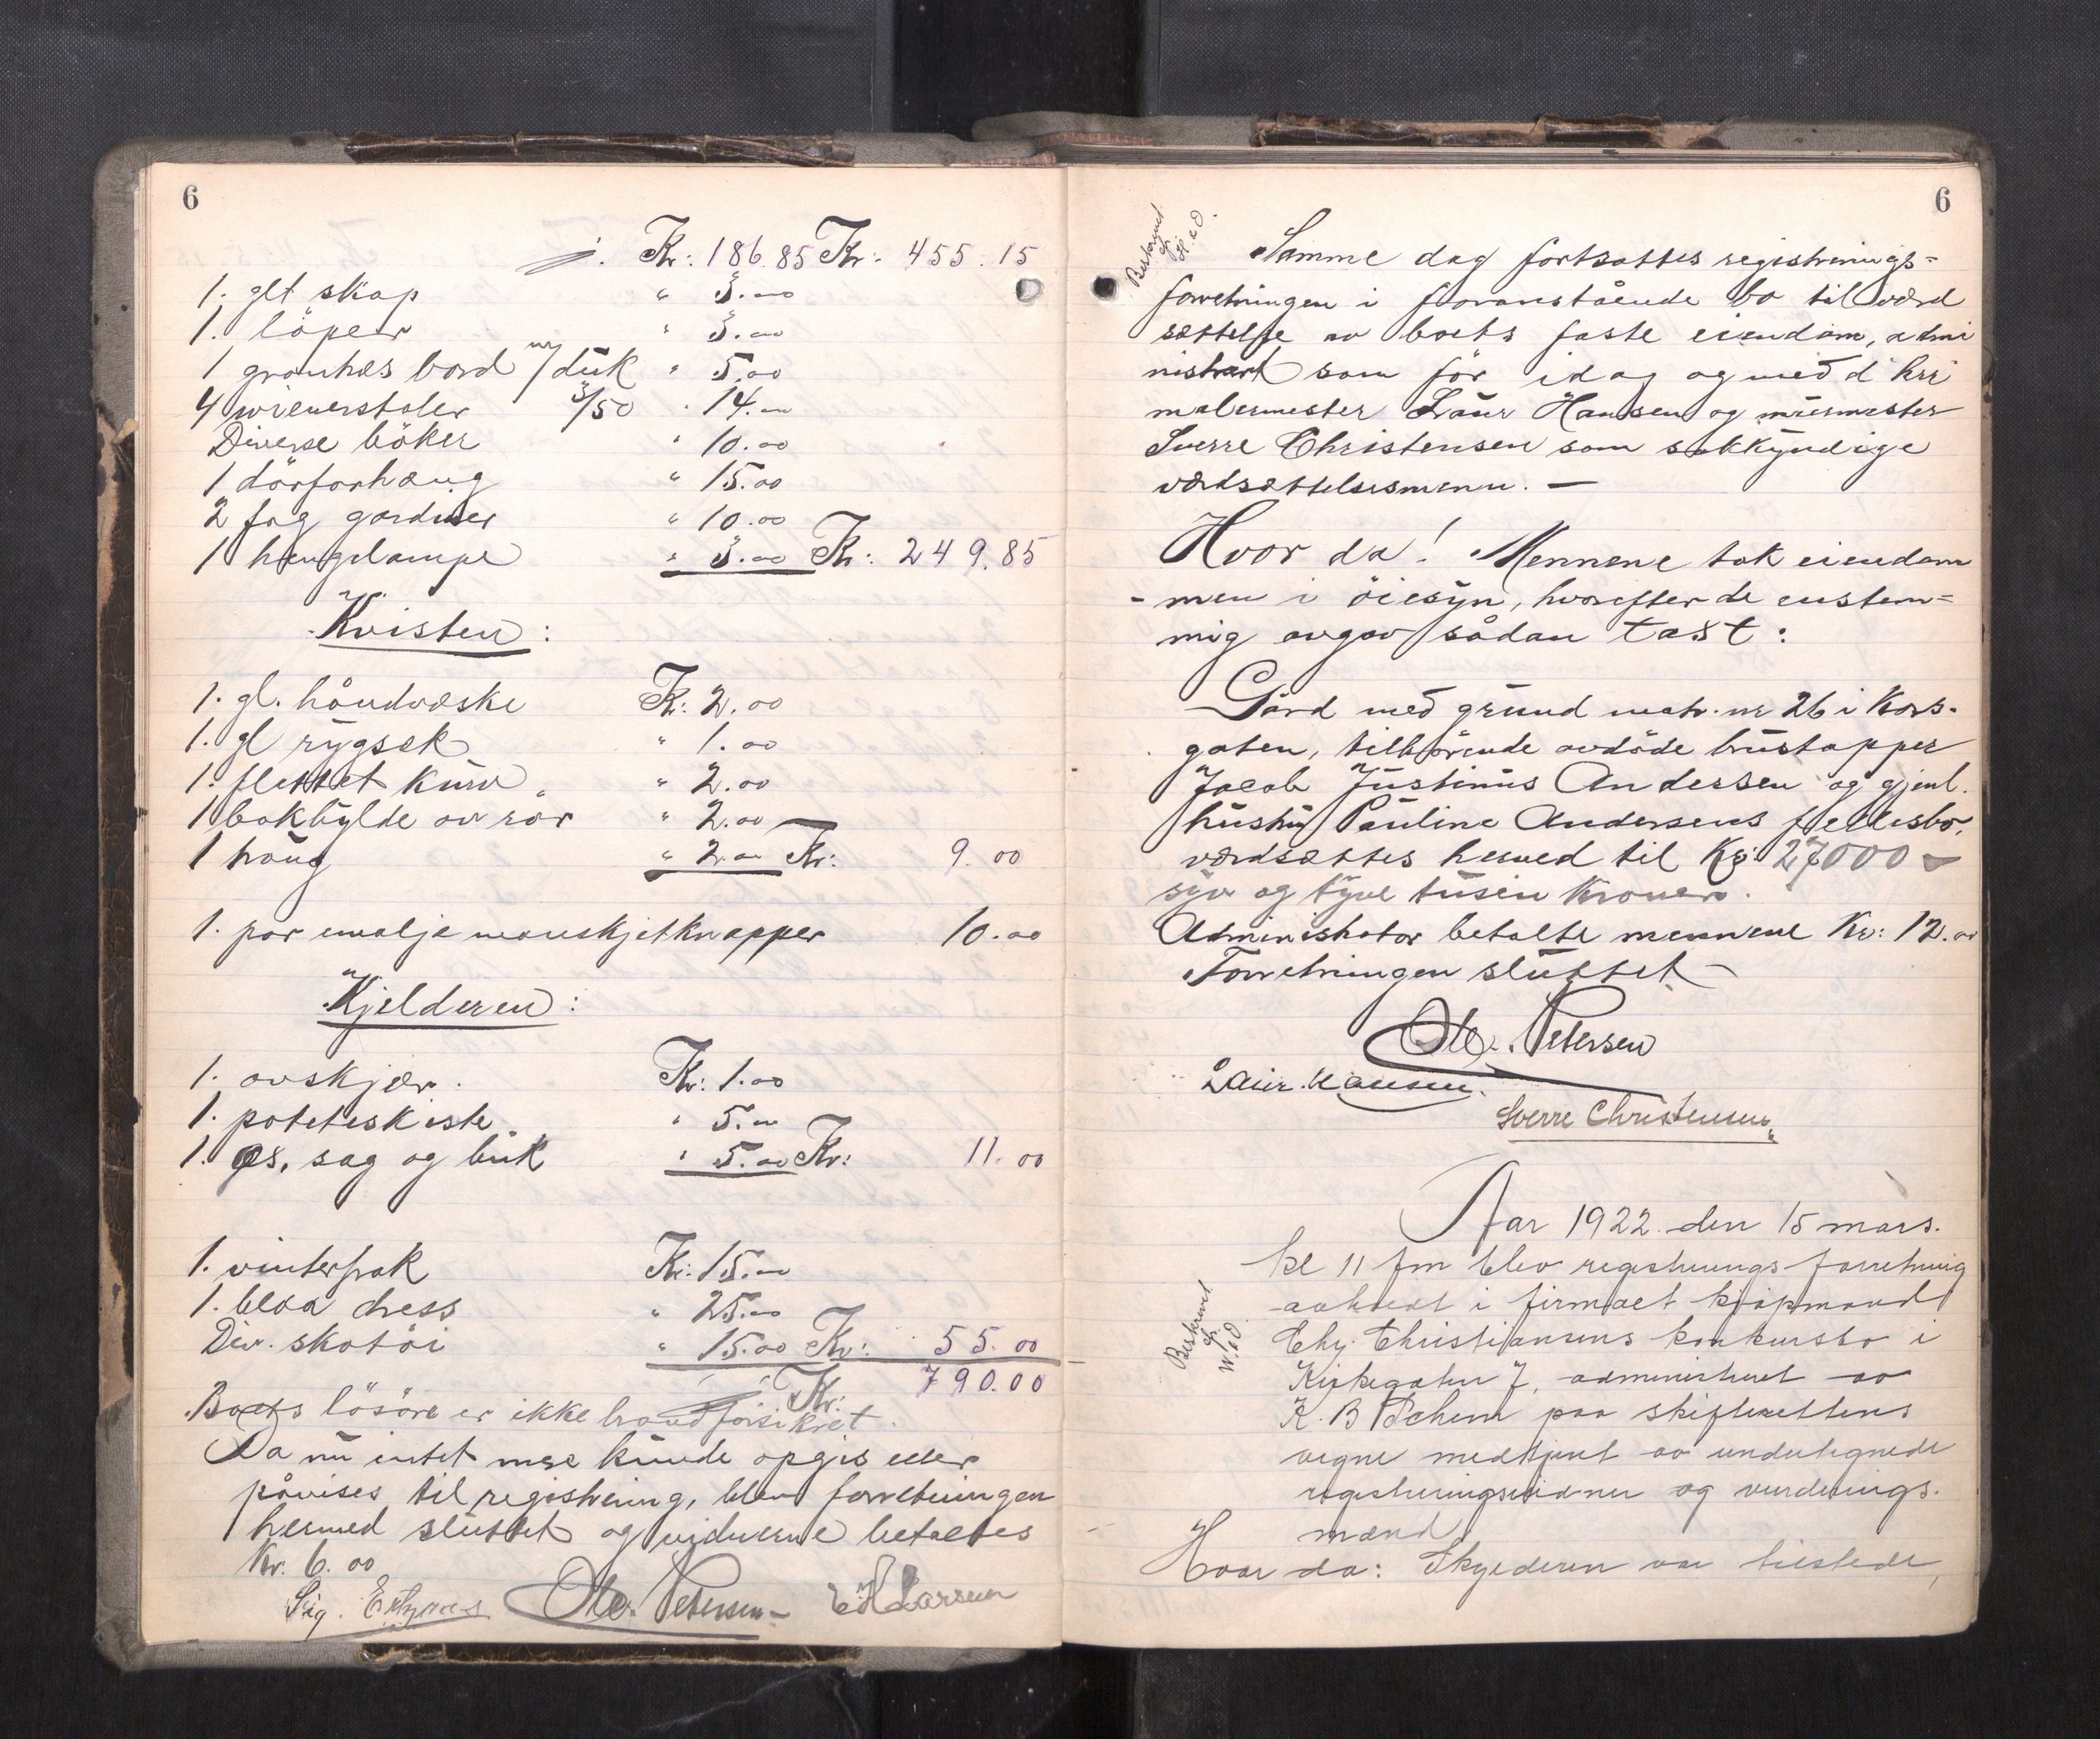 6
Kr: 186.85 Kr. 455.15
1. glt skap " 5.00
1. löper " 5.00
1 granhæs bord m/duk " 5.00
4 wienerstoler 3/50 " 14.00
Diverse böker " 10.00
1 dörforhæng " 15.00
2 fag gardiner " 10.00
1 hengelampe " 5.00 Kr: 249.85
Kvisten:
1. gl. håndvæske Kr: 2.00
1. gl rygsæk " 1.00
1. flettet kurv " 2.00
1 bokhylde av rör " 2.00
1 haug " 2.00 Kr: 9.00
1. par emalje manskjetknapper 10.00
Kjelderen:
1. avskjær. Kr: 1.00
1. poteteskiste " 5.00
1. øs, sag og buk " 5.00 Kr: 11.00
1. vinterfrak Kr: 15.00
1. blaa dress " 25.00
Div. skotöi " 15.00 Kr: 55.00
Kr. 790.00
Boets lösöre er ikke brandforsikret.
Da nu intet mere kunde opgis eller
påvises til registrering, blev forretningen
hermed sluttet og vidnerne betaltes
Kr. 6.00
Sig. Ole. Petersen EH Larsen
6
Beskrevet
Samme dag fortsattes registrerings-
forretningen i foranstående bo til værd
sættelse av boets faste eiendom, admi
nistrert som för idag og med d hrr
malermester Laur Hansen og murmester
Sverre Christensen som sakkyndige
værdsættelsesmenn. —
Hvor da! Mennene tok eiendom
- men i öiesyn, hvorefter de enstem-
mig avgav sådan tast:
Gård med grund matr. nr 26 i Kors-
gaten, tilhörende avdöde brustapper
Jacob Justinus Andersen og gjenl.
hustru Pauline Andersens fellesbo,
værdsættes herved til Kr: 27000 —
syv og tyve tusen Kroner.
Administrator betalte mennene Kr: 12.00
Forretningen sluttet —
Ole. Petersen
Laur. Hansen.
Sverre Christensen
Aar 1922 den 15 mars.
kl 11 fm blev registrerings-forretning
avholdt i firmaet kjøpmand
Chr. Christiansens konkursbo i
Kirkegaten 7, administreret av
K. B. Schem paa skifterettens
vegne medtjent av undertegnede
registreringsvidner og vurderings-
mænd.
Beskrevet
Hvor da: Skyldneren var tilstede,